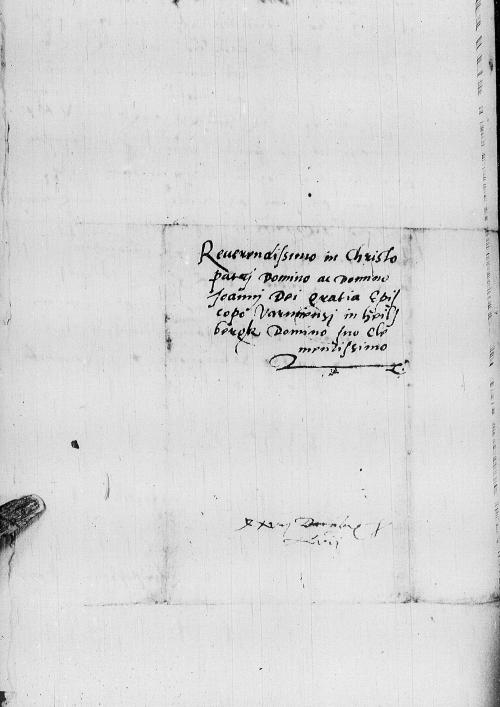 Reuerendissimo in Christo
patrj Domino ac Domino
Joannj Dei gratia Epis
copo Varmiensj in heils
bergk Domino suo cle
mentissimo